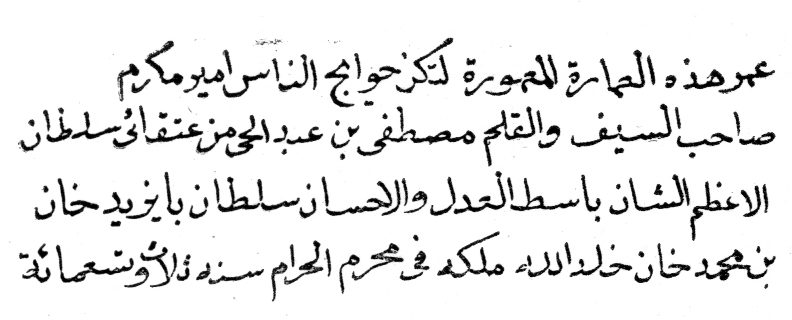 عمر هذه العمارة المعمورة لتكن حوايج الناس امير مكرم
صاحب السيف والقلم مصطفى بن عبد الحى من عتقائ سلطان
الاعظم الشان باسط العدل والاحسان سلطان بايزيد خان
بن محمد خان خلد الله ملكه فى محرم الحرام سنه ثلاث وتسعمائة